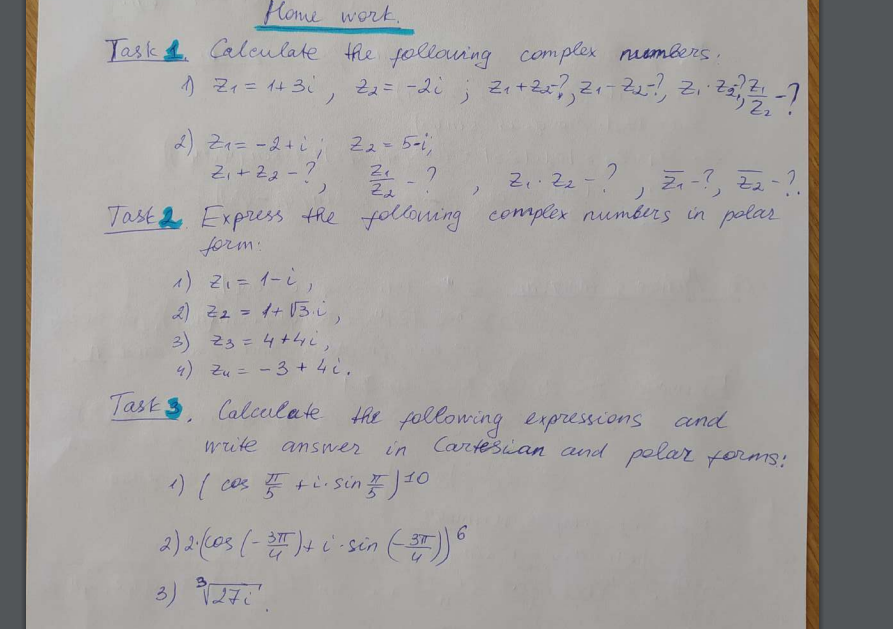 Home work.
Task 1. Calculate the following complex numbers.
1) z₁ = 1+3i, z₂ = -2i; z₁+z₂-?, z₁-z₂-?, z₁·z₂-?, z₁/z₂ -?
2) z₁ = -2+i; z₂ = 5-i;
z₁+z₂ -?, z₁/z₂ -?, z₁·z₂ -?, z̅₁-?, z̅₂-?.
Task 2. Express the following complex numbers in polar
form:
1) z₁ = 1-i,
2) z₂ = 1+√3·i,
3) z₃ = 4+4i,
4) z₄ = -3+4i.
Task 3. Calculate the following expressions and
write answer in Cartesian and polar forms:
1) (cos π/5 + i·sin π/5)¹⁰
2) 2·(cos(-3π/4)+i·sin(-3π/4))⁶
3) ³√27i.